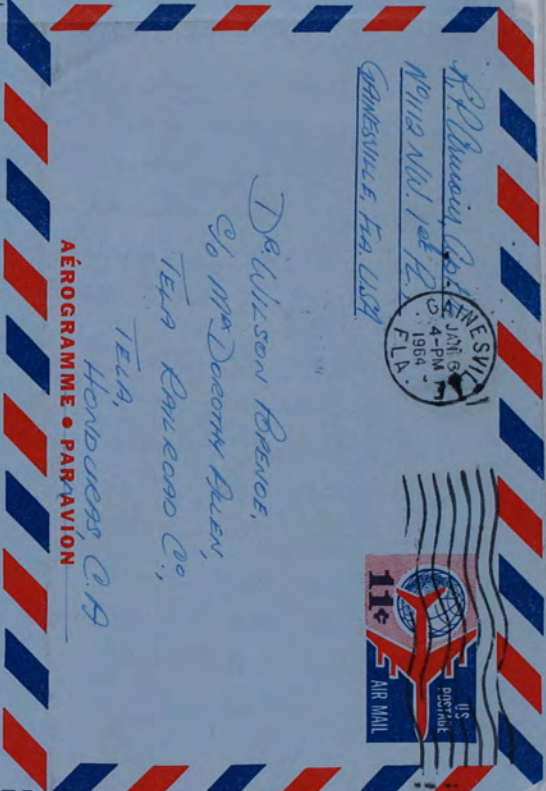 Nº 1112 N.W. 1st Pl.
GAINESVILLE, FLA USA
GAINESVILLE
JAN 6
4-PM
1964
FLA.
U S
POSTAGE
11¢
AIR MAIL
Dr WILSON POPENOE,
c/o Mrs DOROTHY ALLEN,
TELA RAILROAD Co.,
TELA,
HONDURAS, C.A
AÉROGRAMME • PAR AVION